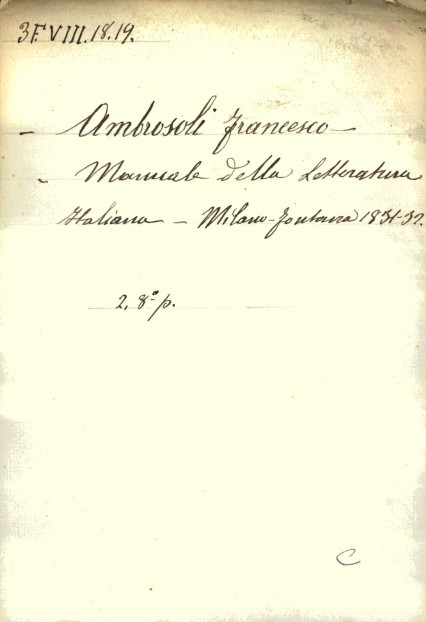 3F.VIII.18.19.
– Ambrosoli Francesco –
– Manuale della Letteratura
Italiana – Milano-Fontana 1831-32.
2, 8º p.
C